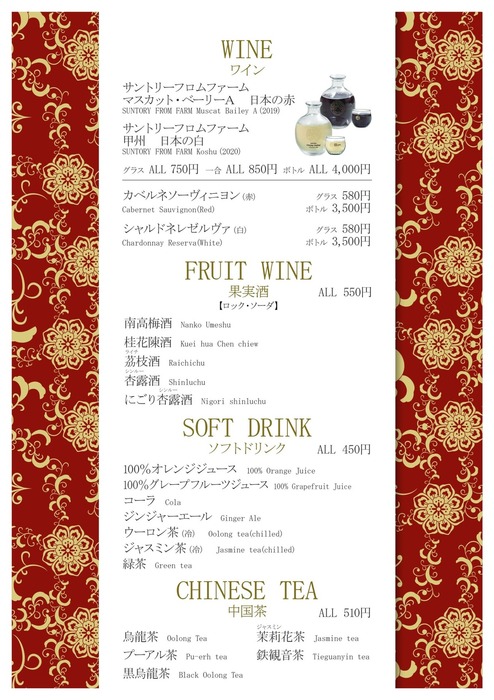 WINE
ワイン
サントリーフロムファーム
マスカット・ベーリーA 日本の赤
SUNTORY FROM FARM Muscat Bailey A(2019)
サントリーフロムファーム
甲州 日本の白
SUNTORY FROM FARM Koshu(2020)
グラス ALL 750円 一合 ALL 850円 ボトル ALL 4,000円
カベルネソーヴィニヨン(赤) グラス 580円
Cabernet Sauvignon(Red) ボトル 3,500円
シャルドネレゼルヴァ(白) グラス 580円
Chardonnay Reserva(White) ボトル 3,500円
FRUIT WINE
果実酒 ALL 550円
【ロック・ソーダ】
南高梅酒 Nanko Umeshu
桂花陳酒 Kuei hua Chen chiew
ライチ
茘枝酒 Raichichu
シンルー
杏露酒 Shinluchu
シンルー
にごり杏露酒 Nigori shinluchu
SOFT DRINK
ソフトドリンク ALL 450円
100%オレンジジュース 100% Orange Juice
100%グレープフルーツジュース 100% Grapefruit Juice
コーラ Cola
ジンジャーエール Ginger Ale
ウーロン茶(冷) Oolong tea(chilled)
ジャスミン茶(冷) Jasmine tea(chilled)
緑茶 Green tea
CHINESE TEA
中国茶 ALL 510円
ジャスミン
烏龍茶 Oolong Tea 茉莉花茶 Jasmine tea
プーアル茶 Pu-erh tea 鉄観音茶 Tieguanyin tea
黒烏龍茶 Black Oolong Tea